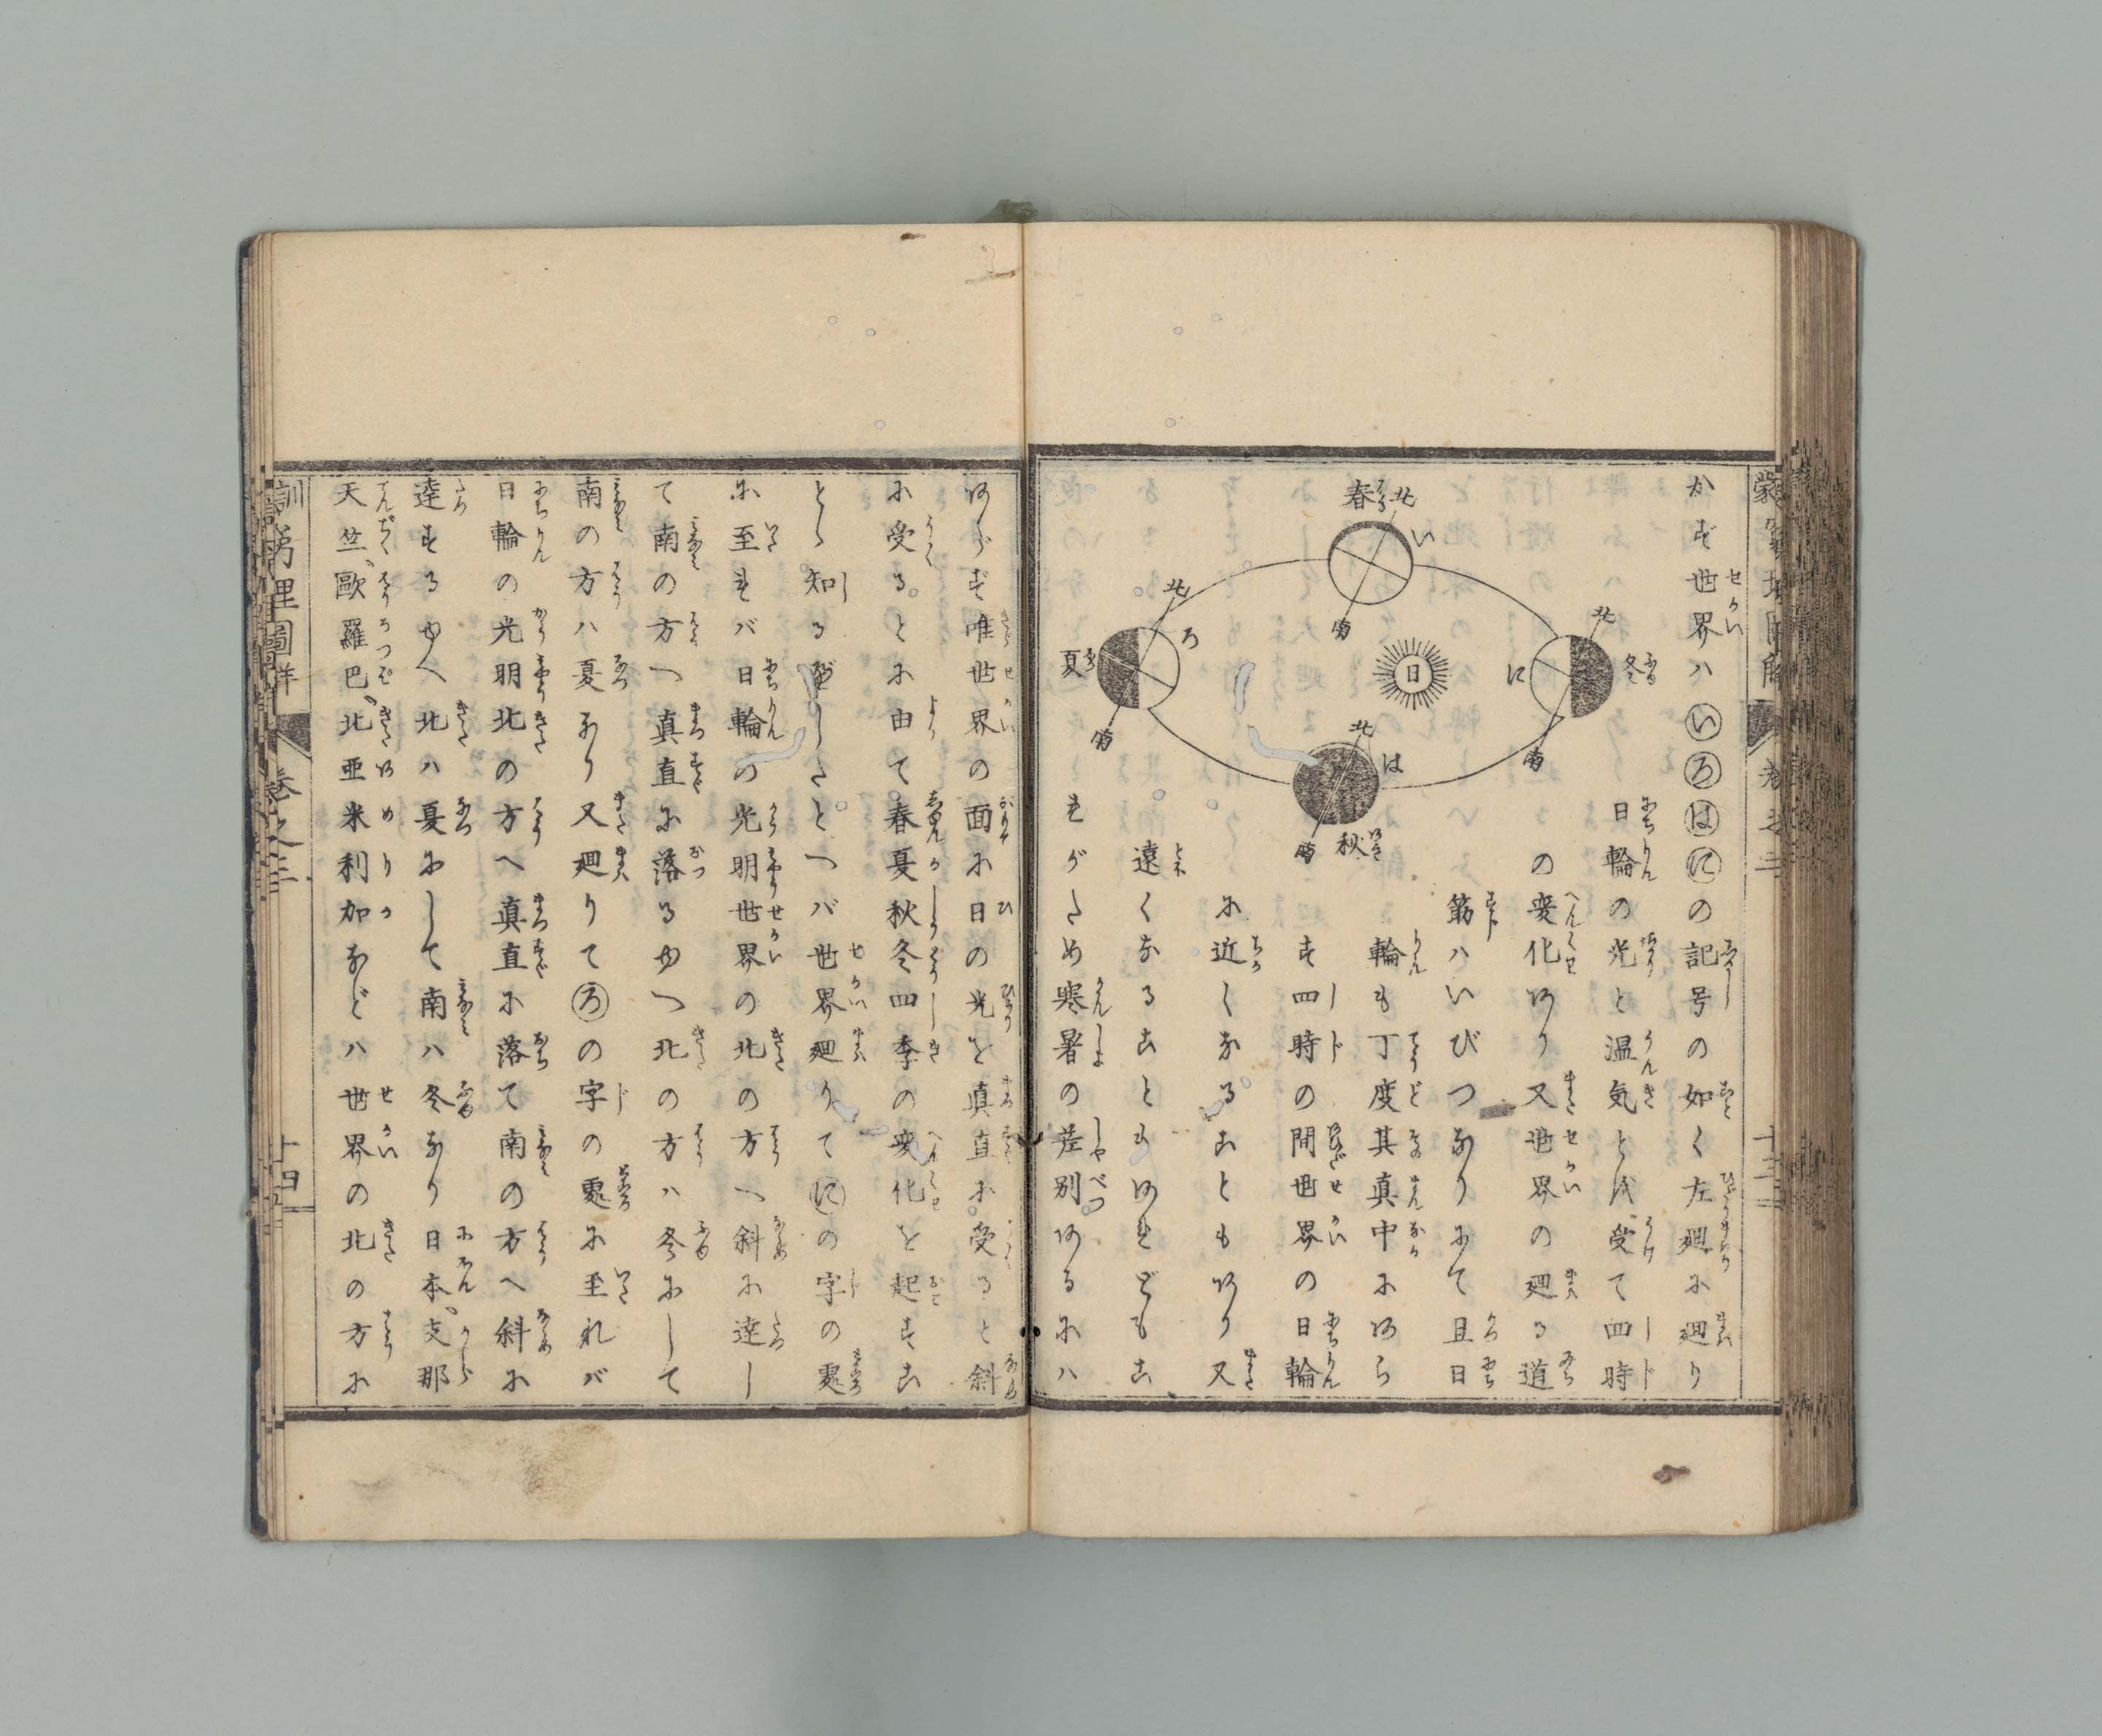 かず世界ハⓘいろはにの記号の如く左廻に廻り
北
春
い
南
北
ろ
夏
南
日
北
冬
に
南
北
は
秋
南
日輪の光と温気とを受て四時
の変化あり又世界の廻る道
筋ハいびつなりにて且日
輪も丁度其真中にあら
ず四時の間世界の日輪
に近くなることもあり又
遠くなることもあれどもこ
れがため寒暑の差別あるにハ
あらず唯世界の面に日の光を真直に受ると斜
に受るとに由て春夏秋冬四季の変化を起すこ
とゝ知る可したとへバ世界廻りてにの字の処
に至れバ日輪の光明世界の北の方へ斜に達し
て南の方へ真直に落るゆへ北の方ハ冬にして
南の方ハ夏なり又廻りてろの字の処に至れバ
日輪の光明北の方へ真直に落て南の方へ斜に
達するゆへ北ハ夏にして南ハ冬なり日本、支那
天竺、歐羅巴、北亜米利加などハ世界の北の方に
巻之三
十四